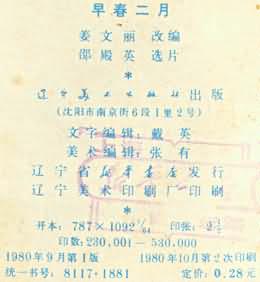 早春二月
姜文丽 改编
邵殿英 选片
*
辽宁美术出版社出版
(沈阳市南京街6段1里2号)
文字编辑:戴英
美术编辑:张有
辽宁省新华书店发行
辽宁美术印刷厂印刷
*
开本:787×1092 1/64 印张:2
印数:230,001—530,000
1980年9月第1版 1980年10月第2次印刷
统一书号:8117·1881 定价:0.28元